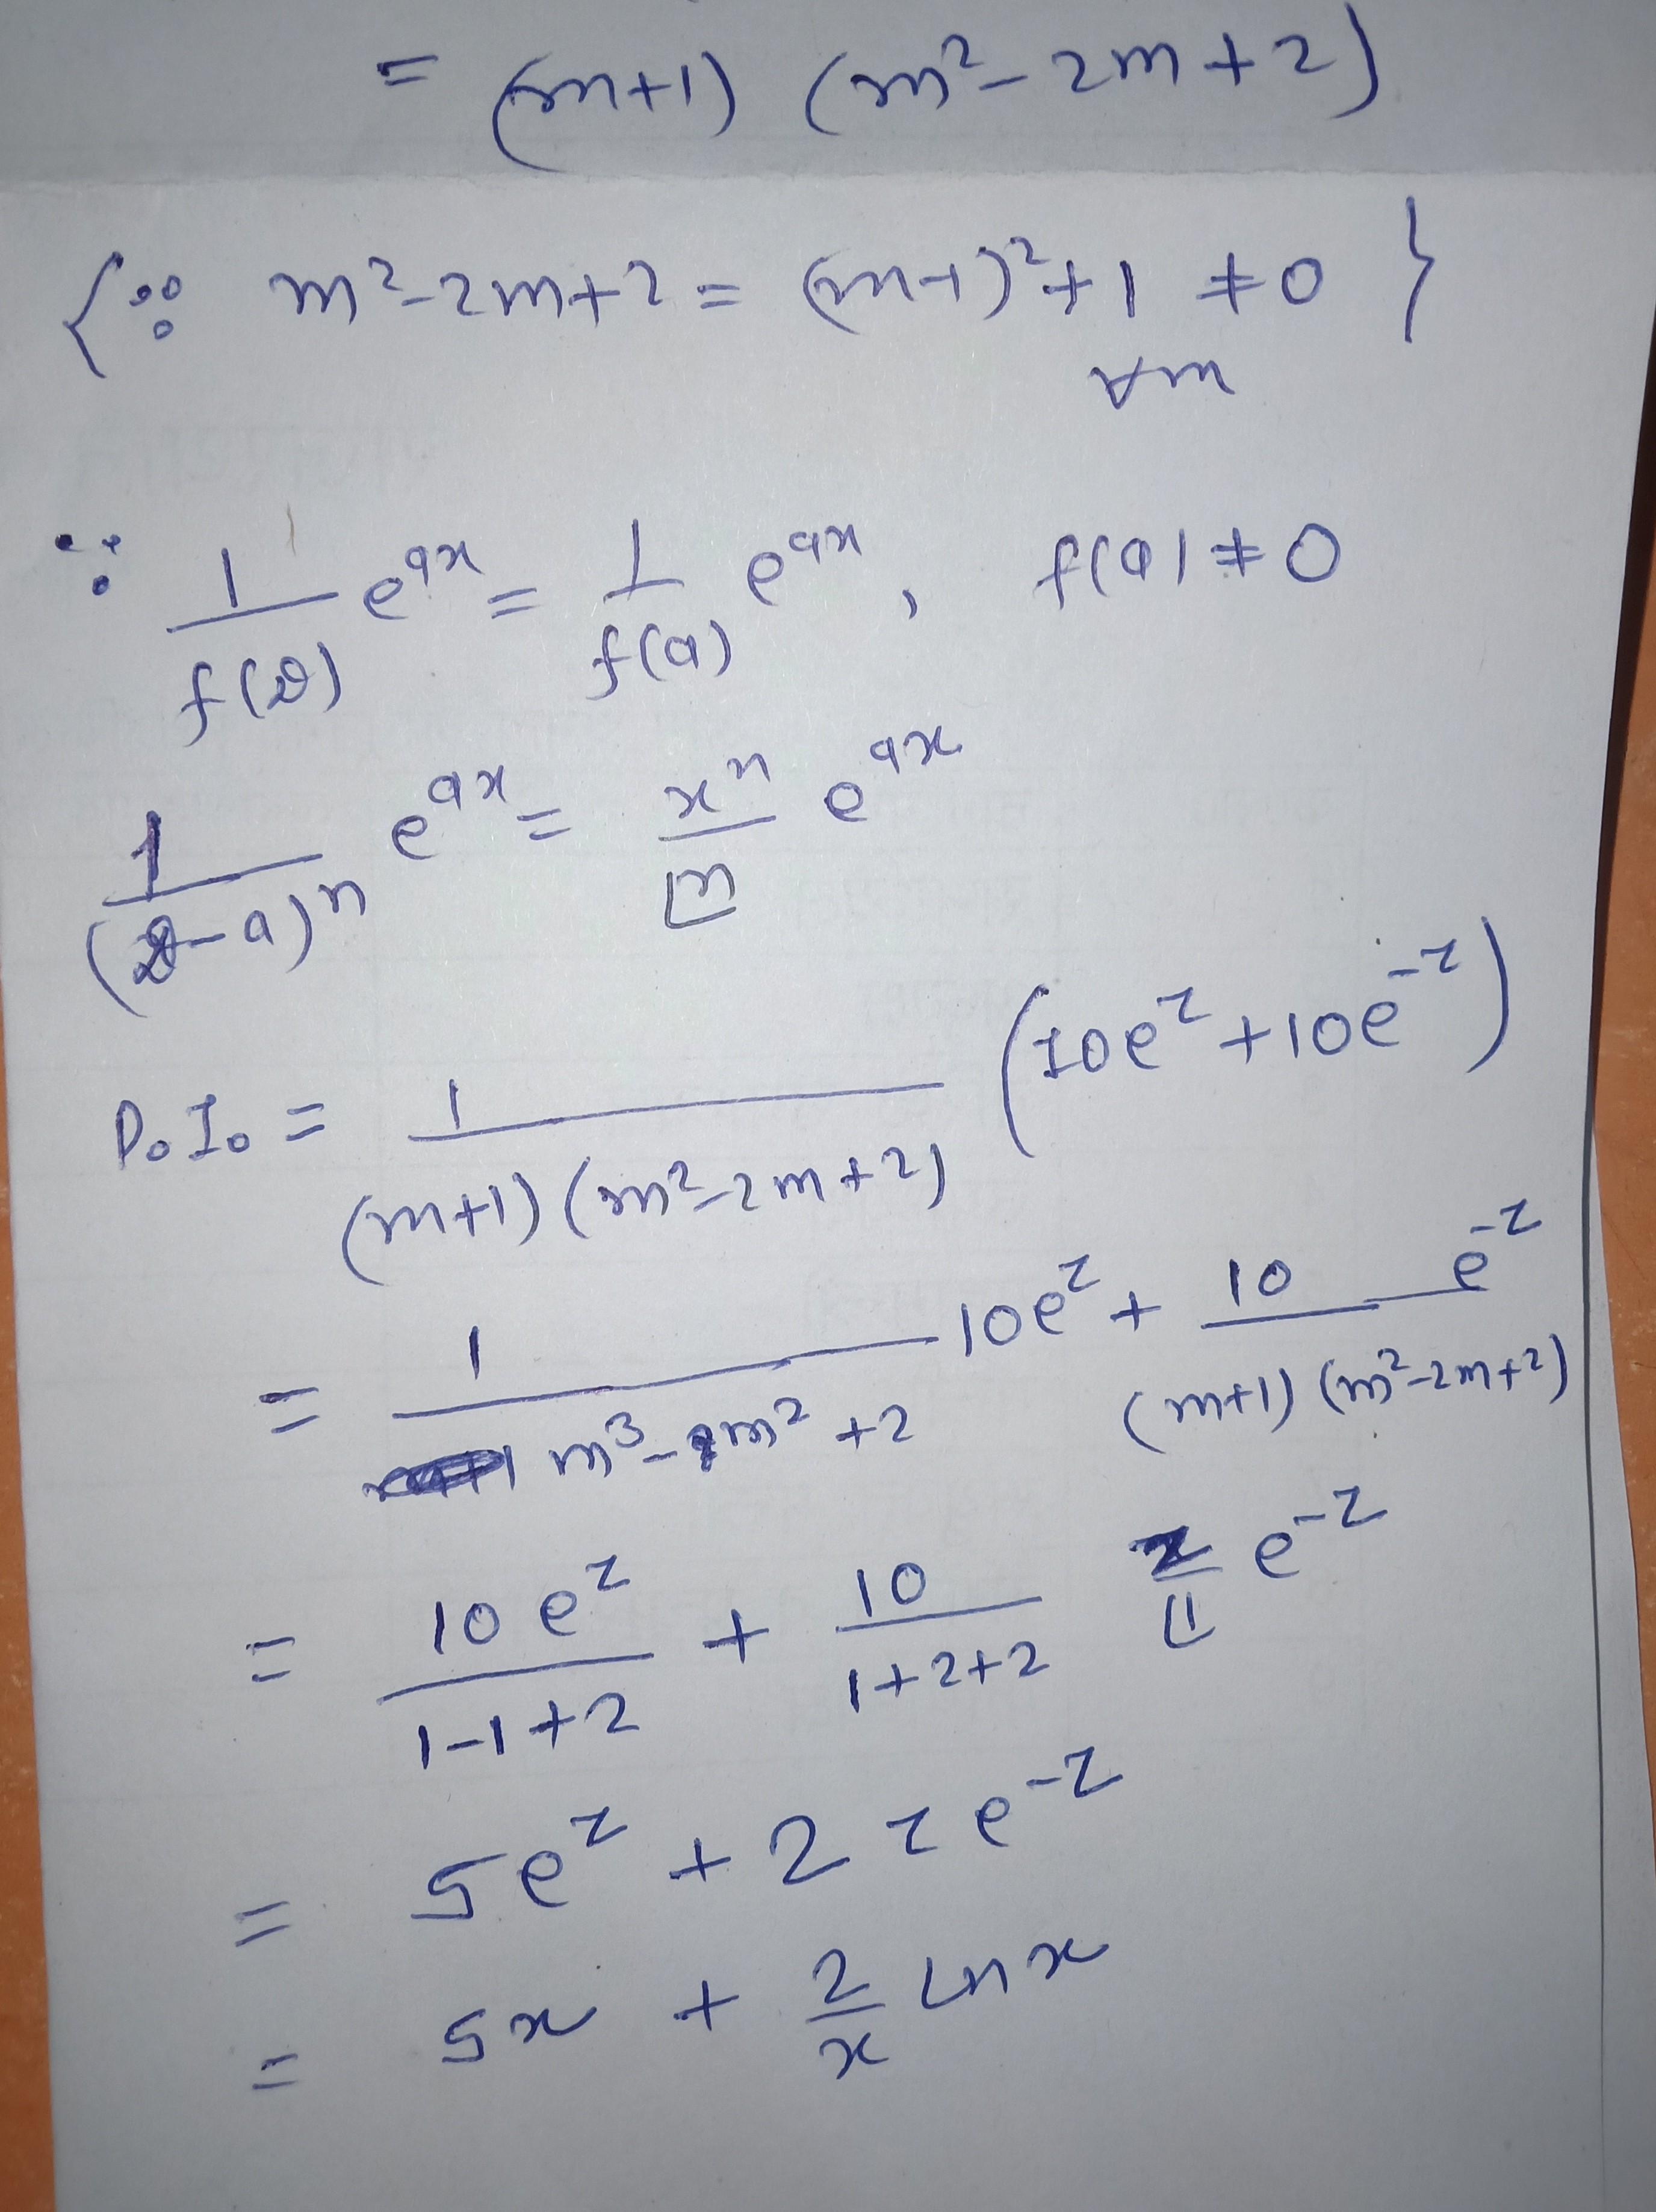 = (m+1) (m²-2m+2)
{∵ m²-2m+2 = (m-1)²+1 ≠ 0 }
∀m
∵ 1/f(D) e^{ax} = 1/f(a) e^{ax}, f(a) ≠ 0
1/(D-a)^n e^{ax} = x^n/⌊n e^{ax}
P.I. = 1/((m+1)(m²-2m+2)) (10e^z+10e^{-z})
= 1/(m³-m²+2) 10e^z + 10/((m+1)(m²-2m+2)) e^{-z}
= 10e^z/(1-1+2) + 10/(1+2+2) z/⌊1 e^{-z}
= 5e^z + 2 z e^{-z}
= 5x + 2/x ln x